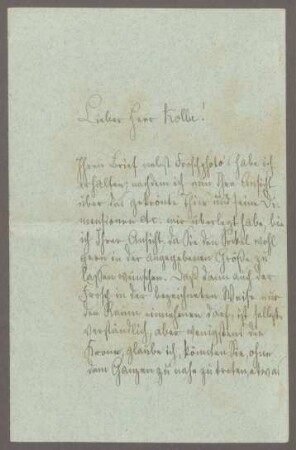 Lieber Herr Kolbe!
Ihren Brief nebst Froschphoto's habe ich
erhalten; nachdem ich nun Ihre Ansicht
über das gekrönte Thier und seine Di-
mensionen etc. mir überlegt habe, bin
ich Ihrer Ansicht, da Sie den Sockel wohl
gern in der angegebenen Größe zu
lassen wünschen. Daß dann auch der
Frosch in der bezeichneten Weise nur
den Raum einnehmen darf, ist selbst-
verständlich, aber wenigstens die
Krone, glaube ich, könnten Sie, ohne
dem Ganzen zu nahe zu treten, etwas